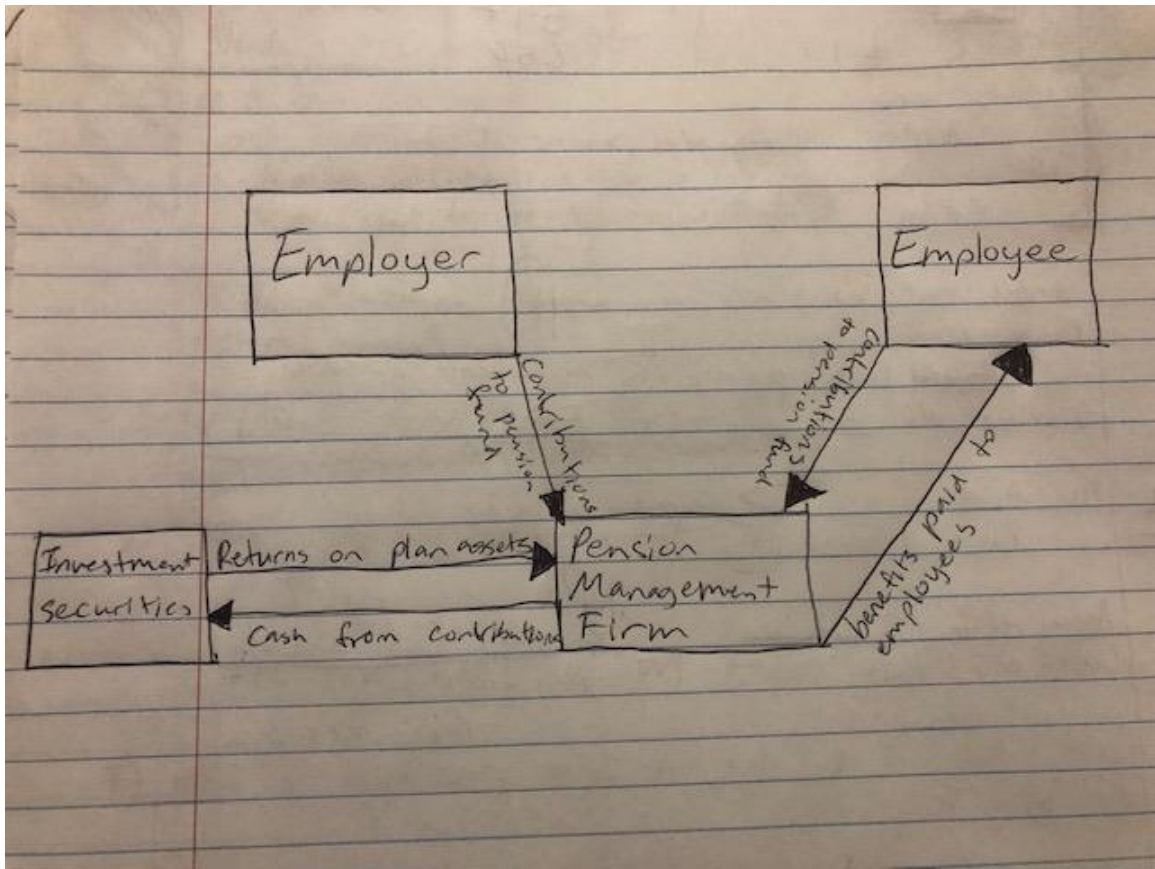 Employer
Employee
Contributions
to pension
fund
Contributions
to pension fund
Investment
securities
Returns on plan assets
Cash from contributions
Pension
Management
Firm
benefits paid to
employees